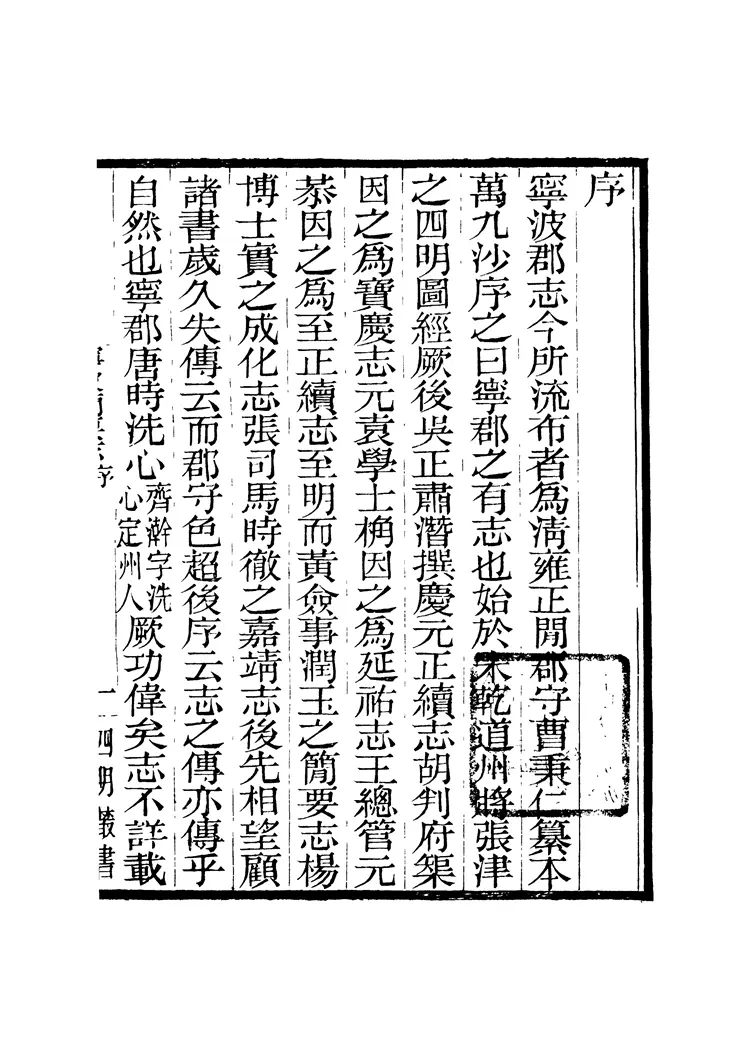 序
寧波郡志今所流布者爲淸雍正閒郡守曹秉仁纂本
萬九沙序之曰寧郡之有志也始於宋乾道州將張津
之四明圖經厥後吳正肅潛撰慶元正續志胡判府榘
因之爲寶慶志元袁學士桷因之爲延祐志王總管元
恭因之爲至正續志至明而黃僉事潤玉之簡要志楊
博士實之成化志張司馬時徹之嘉靖志後先相望顧
諸書歲久失傳云而郡守色超後序云志之傳亦傳乎
自然也寧郡唐時洗心齊澣字洗心定州人厥功偉矣志不詳載
序
一
四明叢書